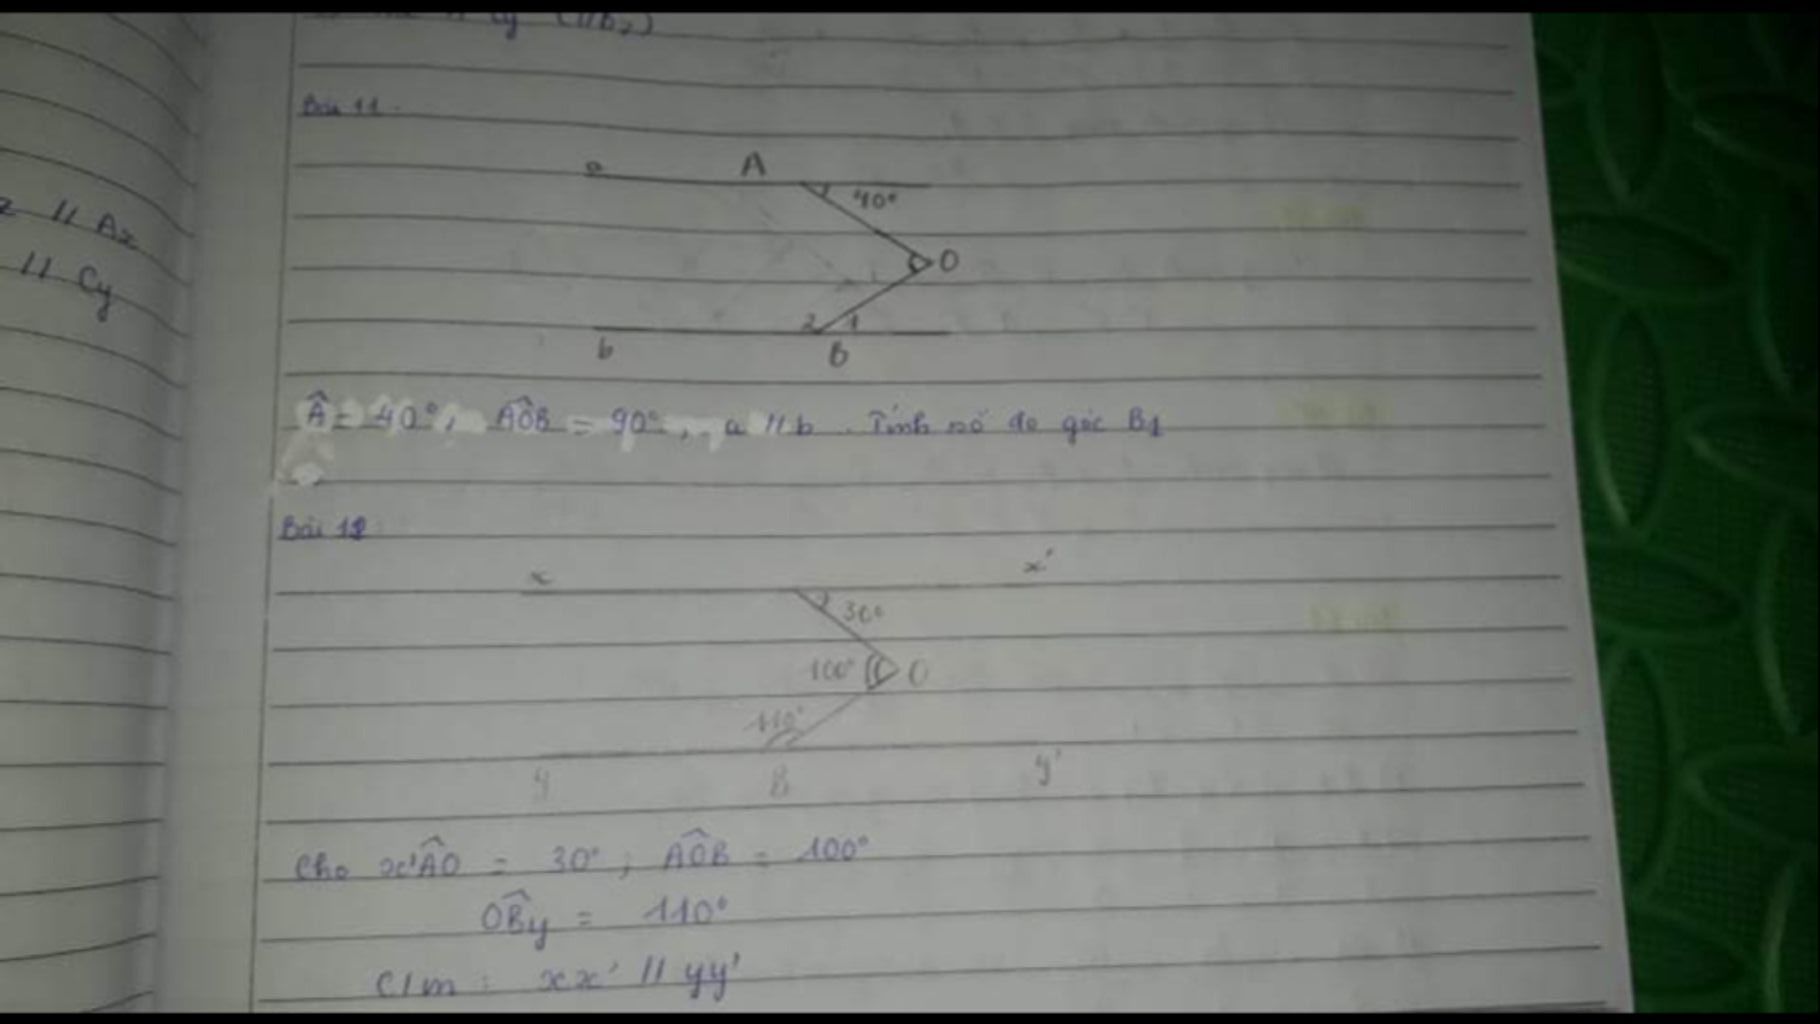 z // Ax
// Cy
Bài 11.
a A
40°
O
2 1
b B
Â = 40°, AÔB = 90°, a // b. Tính số đo góc B1
Bài 12
x x'
30°
100° O
110°
y B y'
Cho x'ÂO = 30°; AÔB = 100°
OB̂y = 110°
C/m: xx' // yy'